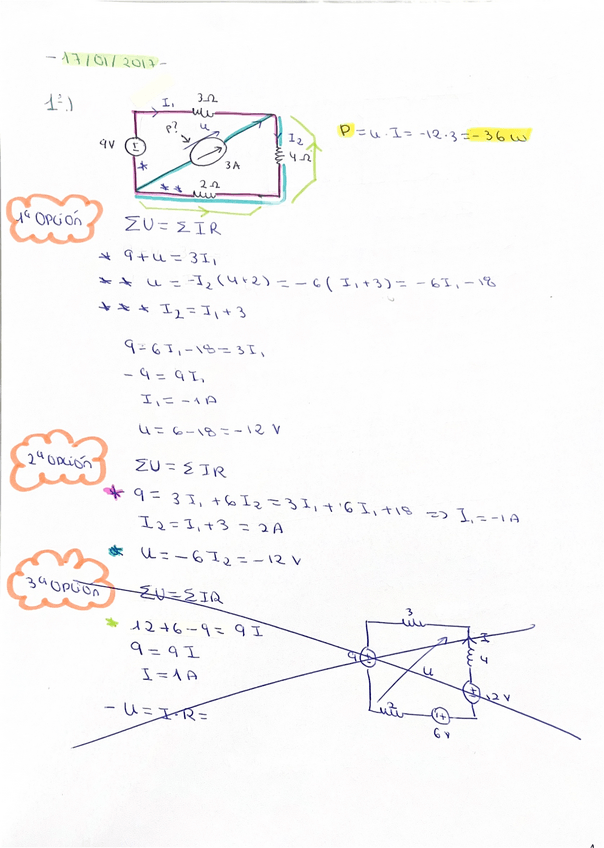 - 17/01/2017 -
1º)
I₁ 3Ω
P? u I₂
9V 4Ω
3A
* ** 2Ω
P = u · I = -12 · 3 = -36 w
1ª opción
ΣU = ΣIR
* 9 + u = 3I₁
** u = -I₂(4+2) = -6(I₁+3) = -6I₁ - 18
*** I₂ = I₁ + 3
9 - 6I₁ - 18 = 3I₁
- 9 = 9I₁
I₁ = -1A
u = 6 - 18 = -12 V
2ª opción
ΣU = ΣIR
* 9 = 3I₁ + 6I₂ = 3I₁ + 6I₁ + 18 => I₁ = -1A
I₂ = I₁ + 3 = 2A
* u = -6I₂ = -12 V
3ª opción
ΣU = ΣIR
* 12 + 6 - 9 = 9I
9 = 9I
I = 1A
- u = I · R =
3
I
9 4
u
12 V
2
6v